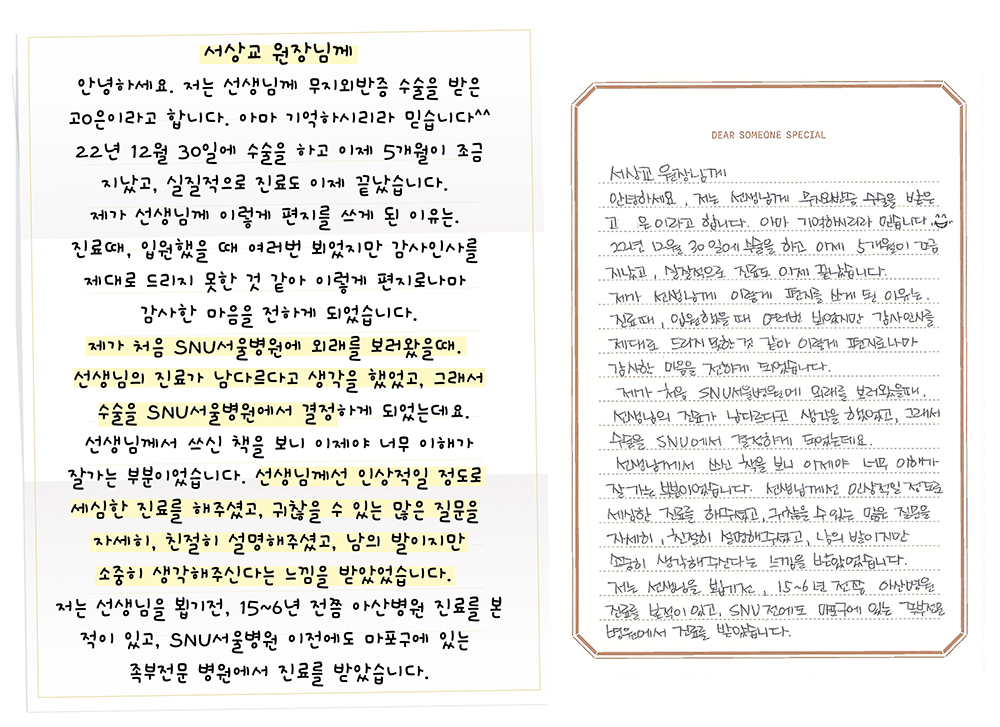 서상교 원장님께
안녕하세요. 저는 선생님께 무지외반증 수술을 받은
고o은이라고 합니다. 아마 기억하시리라 믿습니다^^
22년 12월 30일에 수술을 하고 이제 5개월이 조금
지났고, 실질적으로 진료도 이제 끝났습니다.
제가 선생님께 이렇게 편지를 쓰게 된 이유는.
진료때, 입원했을 때 여러번 뵈었지만 감사인사를
제대로 드리지 못한 것 같아 이렇게 편지로나마
감사한 마음을 전하게 되었습니다.
제가 처음 SNU서울병원에 외래를 보러왔을때.
선생님의 진료가 남다르다고 생각을 했었고, 그래서
수술을 SNU서울병원에서 결정하게 되었는데요.
선생님께서 쓰신 책을 보니 이제야 너무 이해가
잘가는 부분이었습니다. 선생님께선 인상적일 정도로
세심한 진료를 해주셨고, 귀찮을 수 있는 많은 질문을
자세히, 친절히 설명해주셨고, 남의 발이지만
소중히 생각해주신다는 느낌을 받았었습니다.
저는 선생님을 뵙기전, 15~6년 전쯤 아산병원 진료를 본
적이 있고, SNU서울병원 이전에도 마포구에 있는
족부전문 병원에서 진료를 받았습니다.
DEAR SOMEONE SPECIAL
서상교 원장님께
안녕하세요, 저는 선생님께 무지외반증 수술을 받은
고 은이라고 합니다. 아마 기억하시리라 믿습니다.
22년 12월 30일에 수술을 하고 이제 5개월이 조금
지났고, 실질적으로 진료도 이제 끝났습니다.
제가 선생님께 이렇게 편지를 쓰게 된 이유는.
진료때, 입원했을 때 여러번 뵈었지만 감사인사를
제대로 드리지 못한 것 같아 이렇게 편지로나마
감사한 마음을 전하게 되었습니다.
제가 처음 SNU서울병원에 외래를 보러왔을때.
선생님의 진료가 남다르다고 생각을 했었고, 그래서
수술을 SNU에서 결정하게 되었는데요.
선생님께서 쓰신 책을 보니 이제야 너무 이해가
잘가는 부분이었습니다. 선생님께선 인상적일 정도로
세심한 진료를 해주셨고, 귀찮을 수 있는 많은 질문을
자세히, 친절히 설명해주셨고, 남의 발이지만
소중히 생각해주신다는 느낌을 받았었습니다.
저는 선생님을 뵙기전, 15~6년 전쯤 아산병원
진료를 본적이 있고, SNU 전에도 마포구에 있는 족부전문
병원에서 진료를 받았습니다.